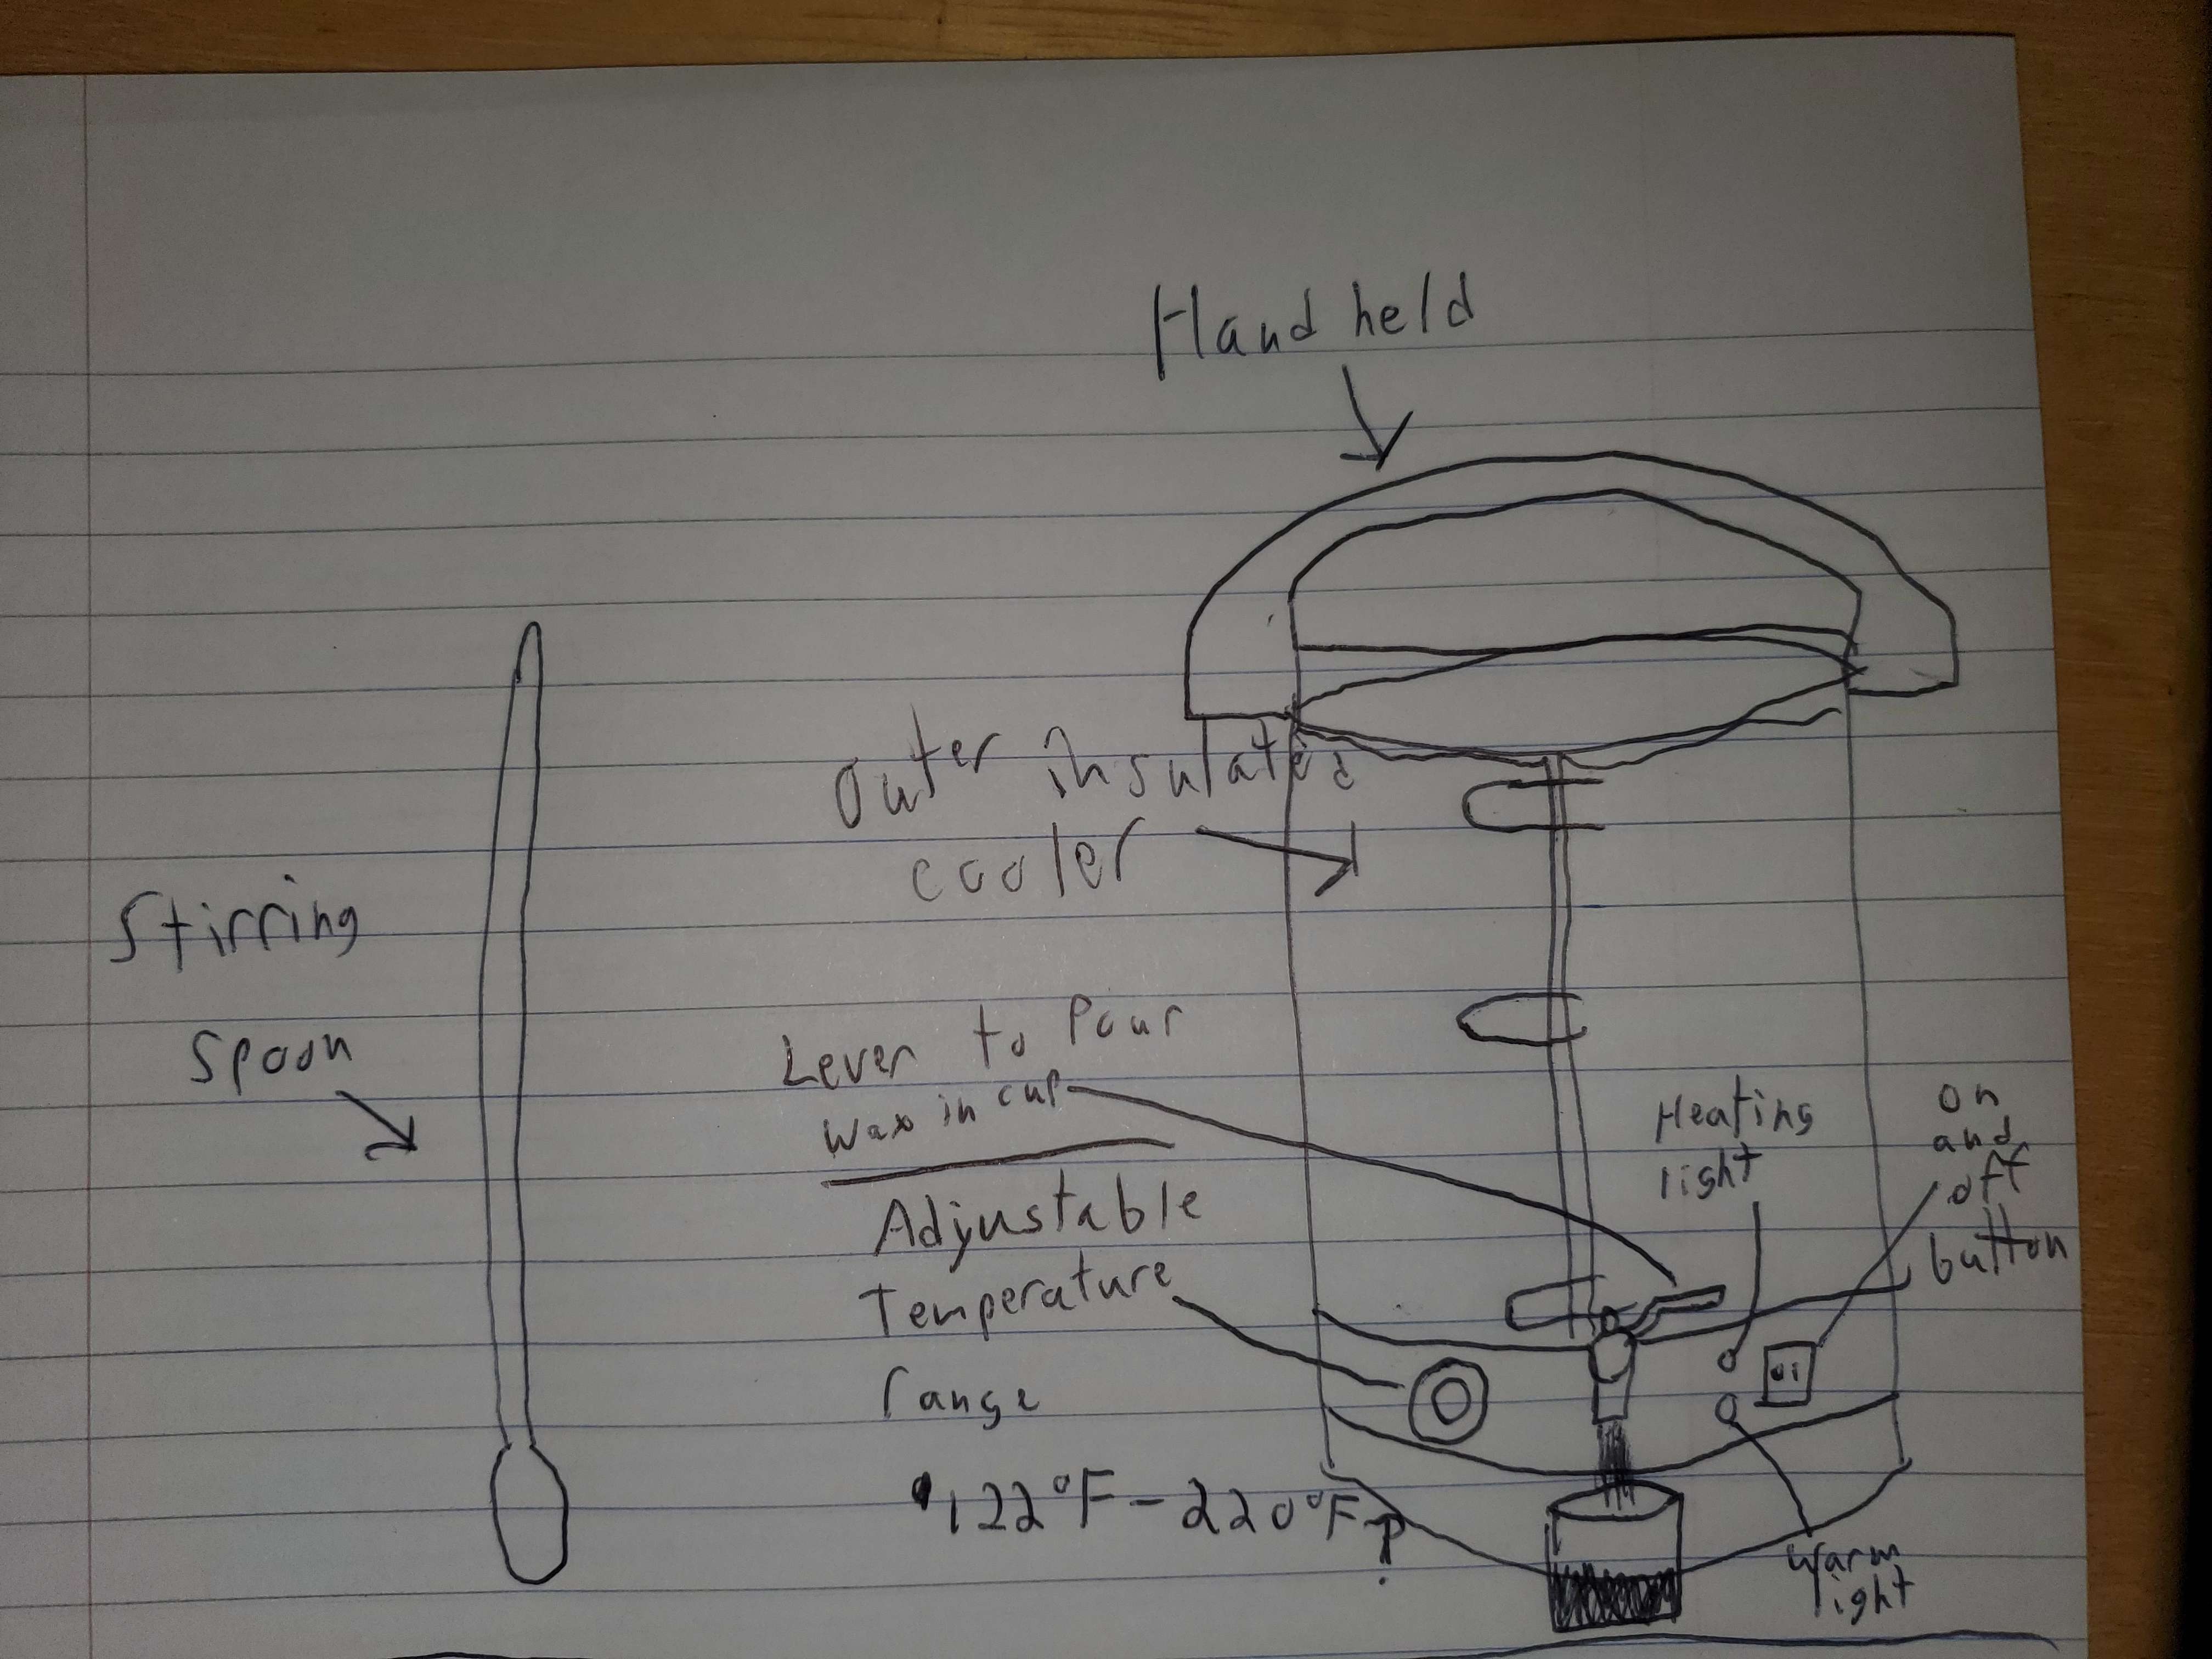 Hand held
outer insulated
cooler
Stirring
Spoon
Lever to Pour
wax in cup
Adjustable
Temperature
range
122°F - 220°F?
Heating
light
on
and
off
button
warm
light